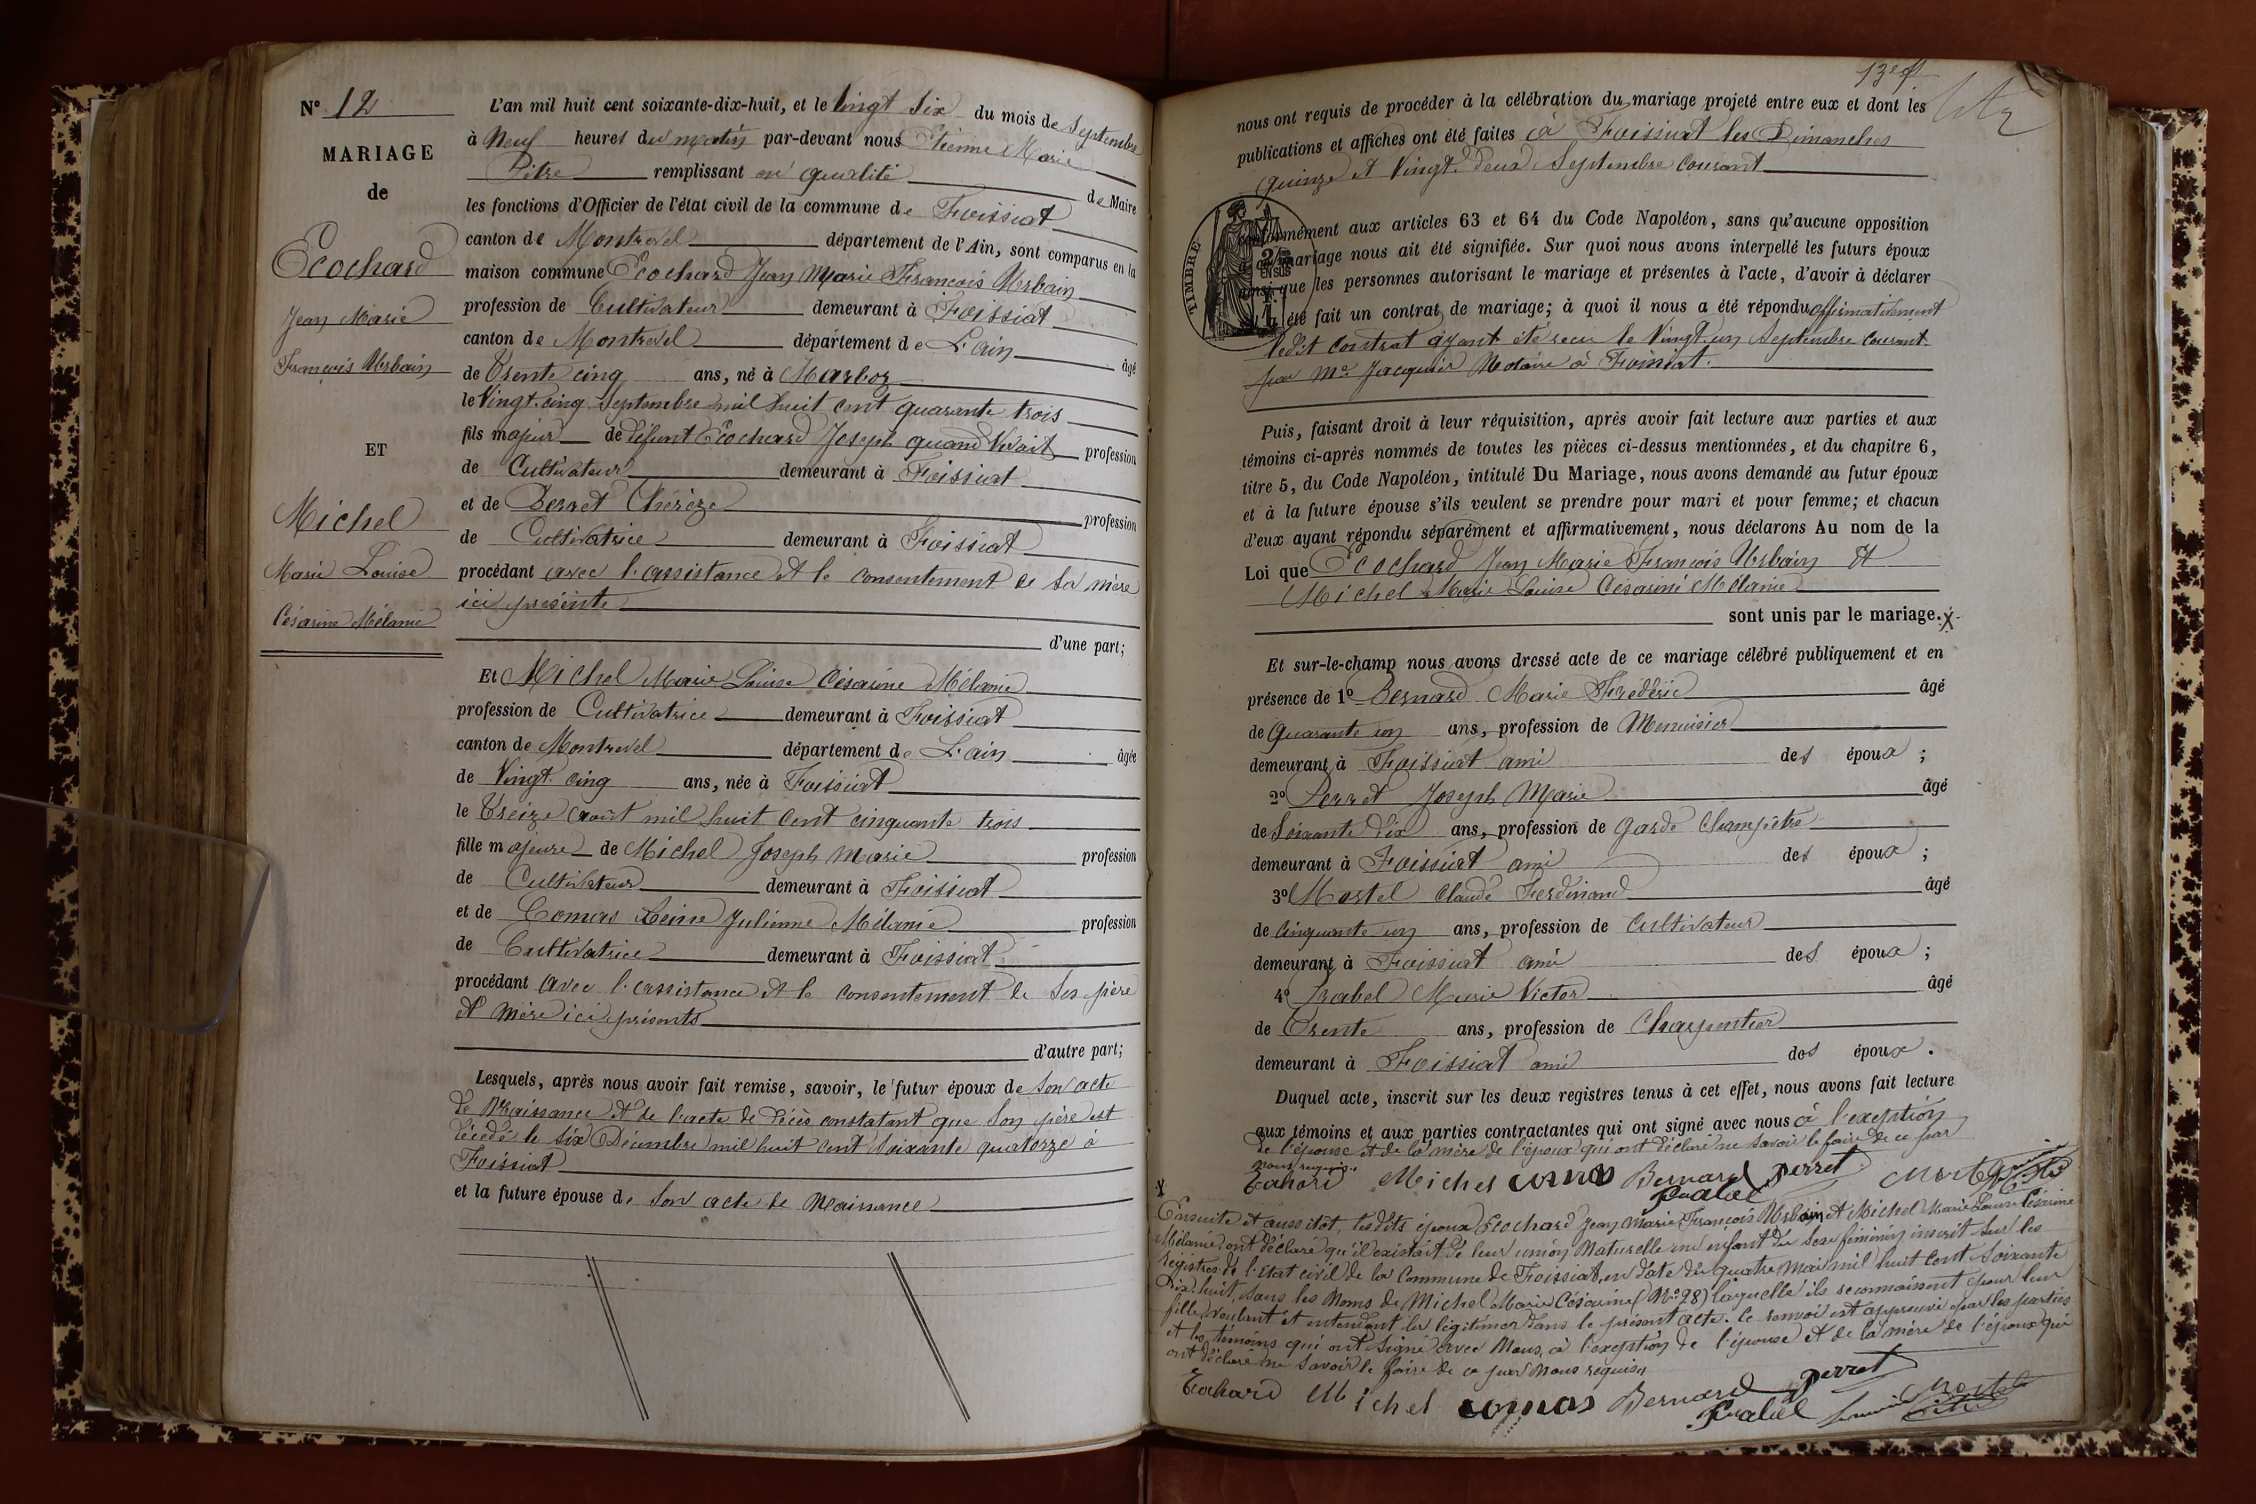 N° 12
MARIAGE
de
Ecochard
Jean Marie
François Urbain
ET
Michel
Marie Louise
Césarine Mélanie
L'an mil huit cent soixante-dix-huit, et le Vingt Six du mois de Septembre
à Neuf heures du matin par-devant nous Etienne Marie
Pitre remplissant en qualité de Maire
les fonctions d'Officier de l'état civil de la commune de Foissiat
canton de Montrevel département de l'Ain, sont comparus en la
maison commune Ecochard Jean Marie François Urbain
profession de Cultivateur demeurant à Foissiat
canton de Montrevel département de L'ain âgé
de Trente cinq ans, né à Marboz
le Vingt cinq Septembre mil huit cent quarante trois
fils majeur de défunt Ecochard Joseph quand Vivait profession
de Cultivateur demeurant à Foissiat
et de Perret Thérèze profession
de Cultivatrice demeurant à Foissiat
procédant avec l'assistance et le consentement de sa mère
ici présente
d'une part;
Et Michel Marie Louise Césarine Mélanie
profession de Cultivatrice demeurant à Foissiat
canton de Montrevel département de L'ain âgée
de Vingt cinq ans, née à Foissiat
le Treize août mil huit cent cinquante trois
fille majeure de Michel Joseph Marie profession
de Cultivateur demeurant à Foissiat
et de Comas Reine Julienne Mélanie profession
de Cultivatrice demeurant à Foissiat
procédant avec l'assistance et le consentement de ses père
et mère ici présents
d'autre part;
Lesquels, après nous avoir fait remise, savoir, le futur époux de son acte
de Naissance et de l'acte de décès constatant que son père est
décédé le six Décembre mil huit cent soixante quatorze à
Foissiat
et la future épouse de son acte de Naissance
13e f
nous ont requis de procéder à la célébration du mariage projeté entre eux et dont les
publications et affiches ont été faites à Foissiat les Dimanches
quinze et Vingt deux Septembre courant
conformément aux articles 63 et 64 du Code Napoléon, sans qu'aucune opposition
à ce mariage nous ait été signifiée. Sur quoi nous avons interpellé les futurs époux
ainsi que les personnes autorisant le mariage et présentes à l'acte, d'avoir à déclarer
s'il a été fait un contrat de mariage; à quoi il nous a été répondu affirmativement
ledit contrat ayant été reçu le Vingt un Septembre courant
par Me Jacquier Notaire à Foissiat.
TIMBRE
Puis, faisant droit à leur réquisition, après avoir fait lecture aux parties et aux
témoins ci-après nommés de toutes les pièces ci-dessus mentionnées, et du chapitre 6,
titre 5, du Code Napoléon, intitulé Du Mariage, nous avons demandé au futur époux
et à la future épouse s'ils veulent se prendre pour mari et pour femme; et chacun
d'eux ayant répondu séparément et affirmativement, nous déclarons Au nom de la
Loi que Ecochard Jean Marie François Urbain Et
Michel Marie Louise Césarine Mélanie
sont unis par le mariage. X
Et sur-le-champ nous avons dressé acte de ce mariage célébré publiquement et en
présence de 1° Bernard Marie Frédéric âgé
de Quarante un ans, profession de Menuisier
demeurant à Foissiat ami des époux ;
2° Perret Joseph Marie âgé
de Soixante dix ans, profession de Garde Champêtre
demeurant à Foissiat ami des époux ;
3° Martel Claude Ferdinand âgé
de Cinquante un ans, profession de Cultivateur
demeurant à Foissiat ami des époux ;
4° Prabel Marie Victor âgé
de Trente ans, profession de Charpentier
demeurant à Foissiat ami des époux.
Duquel acte, inscrit sur les deux registres tenus à cet effet, nous avons fait lecture
aux témoins et aux parties contractantes qui ont signé avec nous à l'exception
de l'épouse et de la mère de l'époux qui ont déclaré ne savoir le faire de ce par
nous requis.
Ecochard Michel comas Bernard Perret
Prabel
X Ensuite et aussitôt, lesdits époux Ecochard Jean Marie François Urbain et Michel Marie Louise Césarine
Mélanie ont déclaré qu'il existait de leur union Naturelle un enfant du sexe féminin inscrit sur les
régistres de l'état civil de la Commune de Foissiat, en date du quatre Mai mil huit cent soixante
Dix huit, sous les Noms de Michel Marie Césarine (N° 28) laquelle ils reconnaissent pour leur
fille, voulant et entendant la légitimer dans le présent acte. le renvoi est approuvé par les parties
et les témoins qui ont signé avec Nous, à l'exception de l'épouse et de la mère de l'époux qui
ont déclaré ne savoir le faire de ce par Nous requis.
Ecochard Michel comas Bernard Perret
Prabel